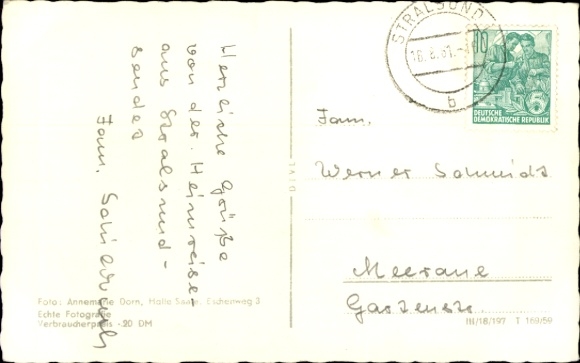 Herzliche Grüße
von der Heimreise
aus Stralsund-
sendet
Fam.
Foto: Annemarie Dorn, Halle Saale, Eschenweg 3
Echte Fotografie
Verbraucherpreis -.20 DM
STRALSUND
b
10
5
DEUTSCHE
DEMOKRATISCHE REPUBLIK
Fam.
Werner Schmidt
Meerane
Gartenstr.
III/18/197 T 169/59